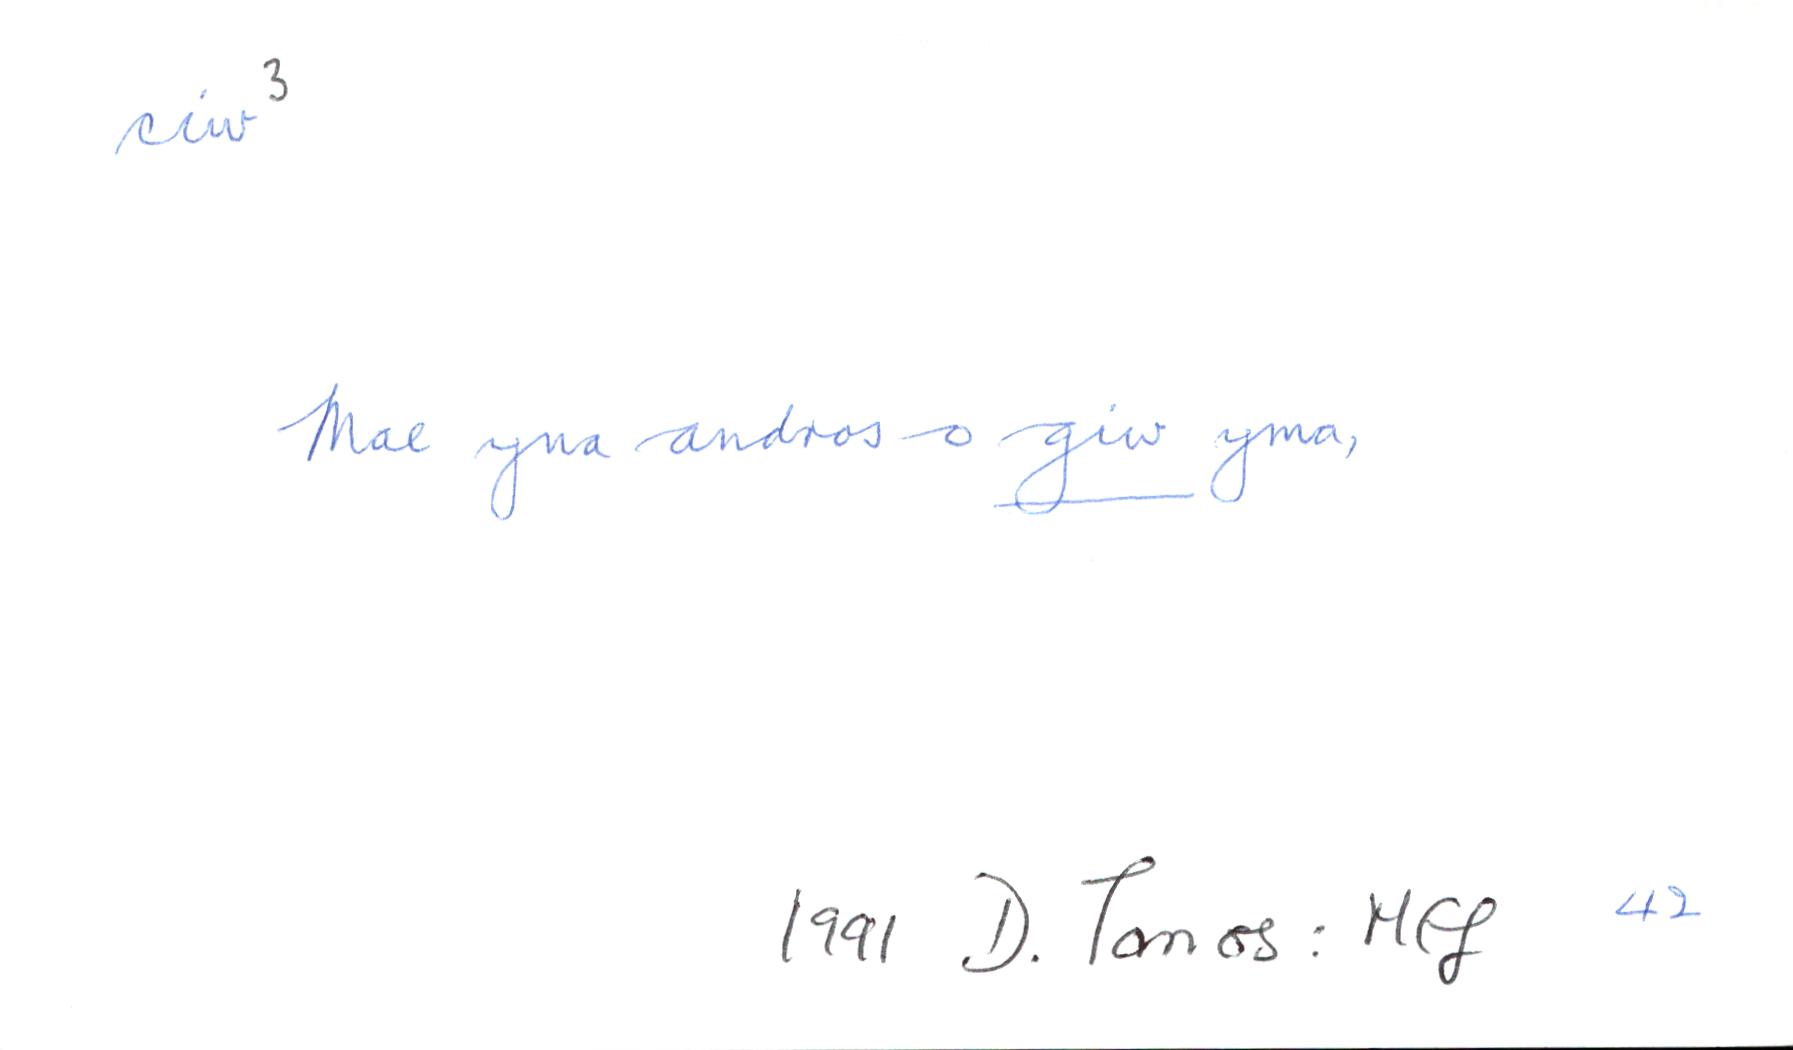 ciw³
Mae yna andros o giw yma,
1991 D. Tomos: MCG 42